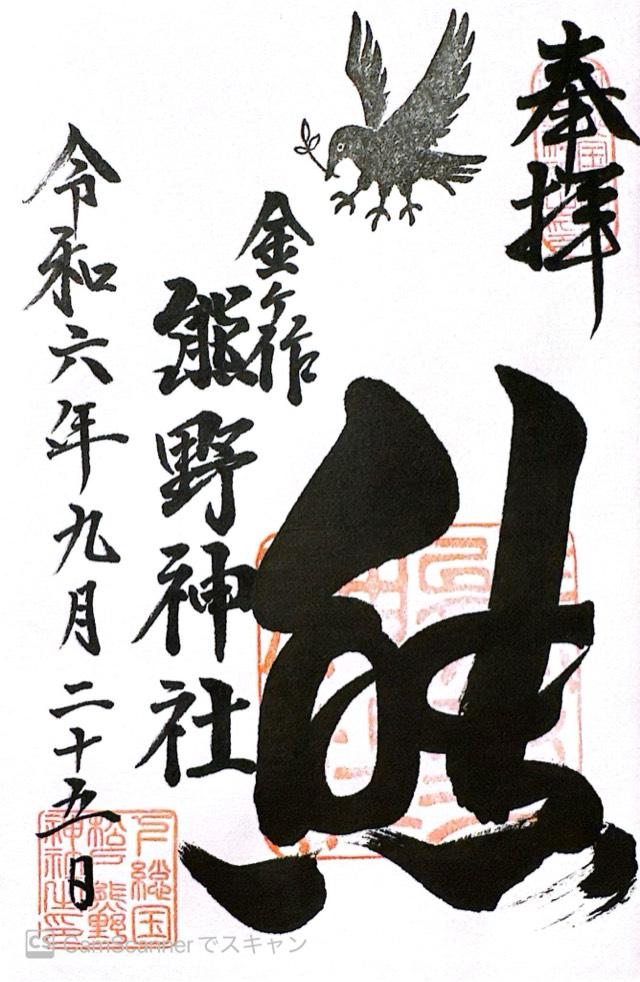 奉拝
熊
金ケ作
熊野神社
令和六年九月二十五日
下総国
松戸熊野
神社之印
CS CamScannerでスキャン